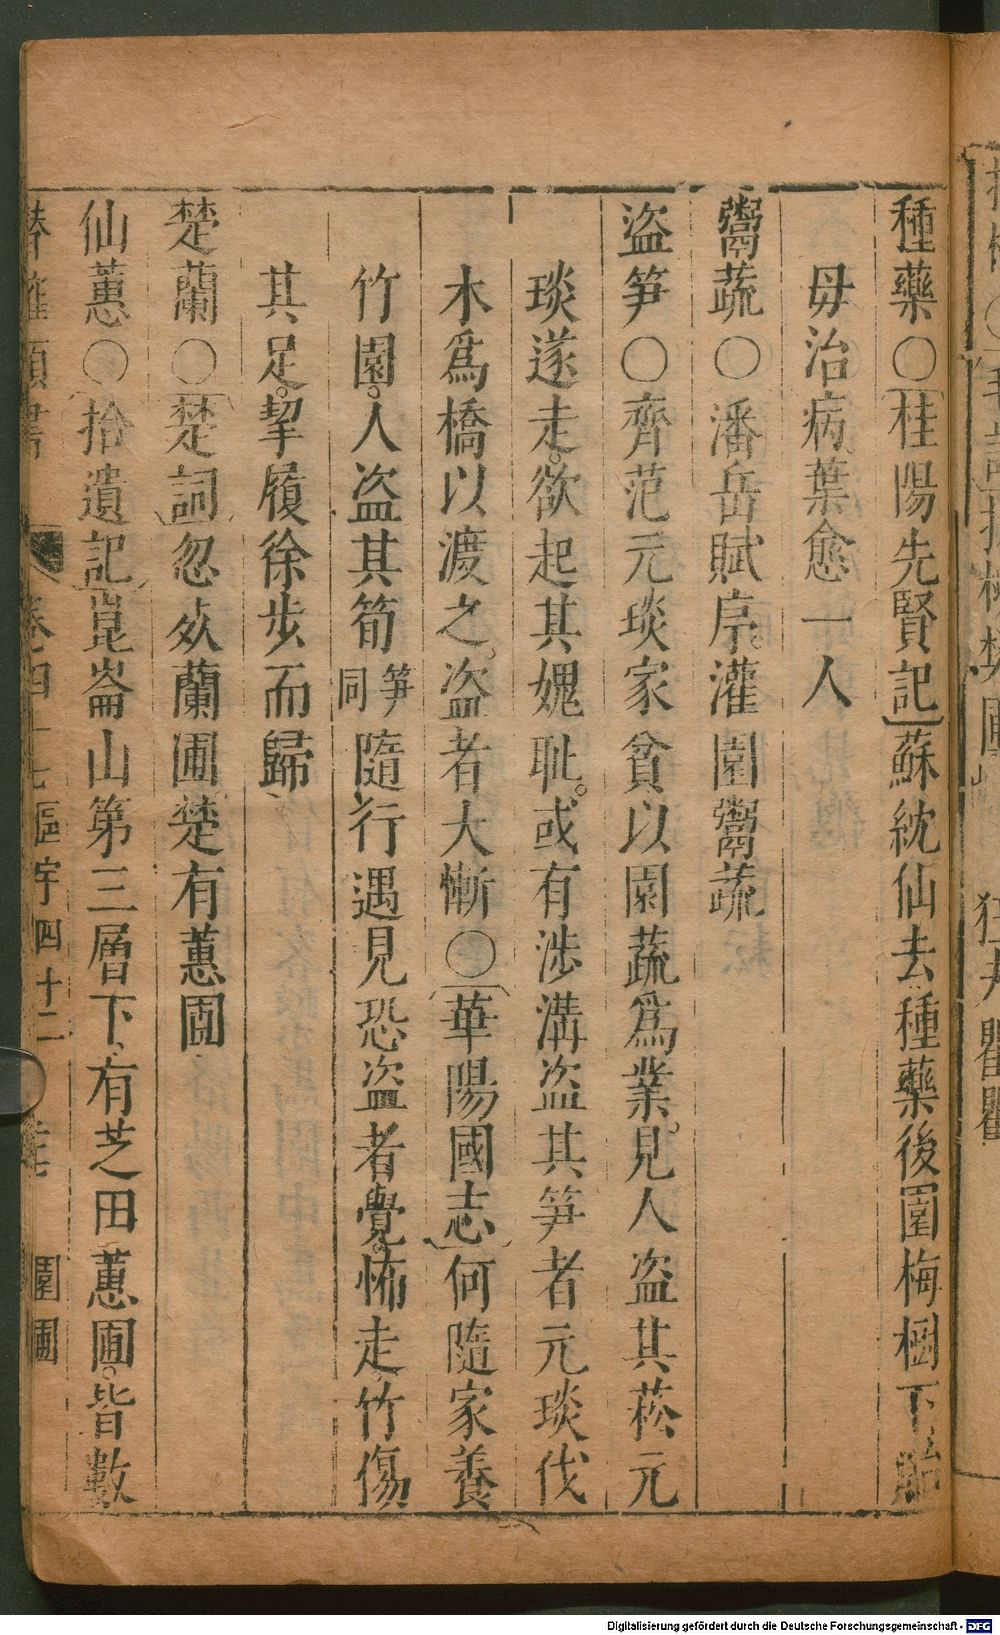 種藥○桂陽先賢記蘇紞仙去種藥後園梅樹下
母治病葉愈一人
鬻蔬○潘岳賦序灌園鬻蔬
盜笋○齊范元琰家貧以園蔬爲業見人盜其菘元
琰遂走欲起其媿耻或有涉溝盜其笋者元琰伐
木爲橋以渡之盜者大慚○華陽國志何隨家養
竹園人盜其筍笋同隨行遇見恐盜者覺怖走竹傷
其足挈履徐步而歸
楚蘭○楚詞忽於蘭圃楚有蕙圃
仙蕙○拾遺記崑崙山第三層下有芝田蕙圃皆數
卷四十七 區宇四十二 園圃
Digitalisierung gefördert durch die Deutsche Forschungsgemeinschaft - DFG